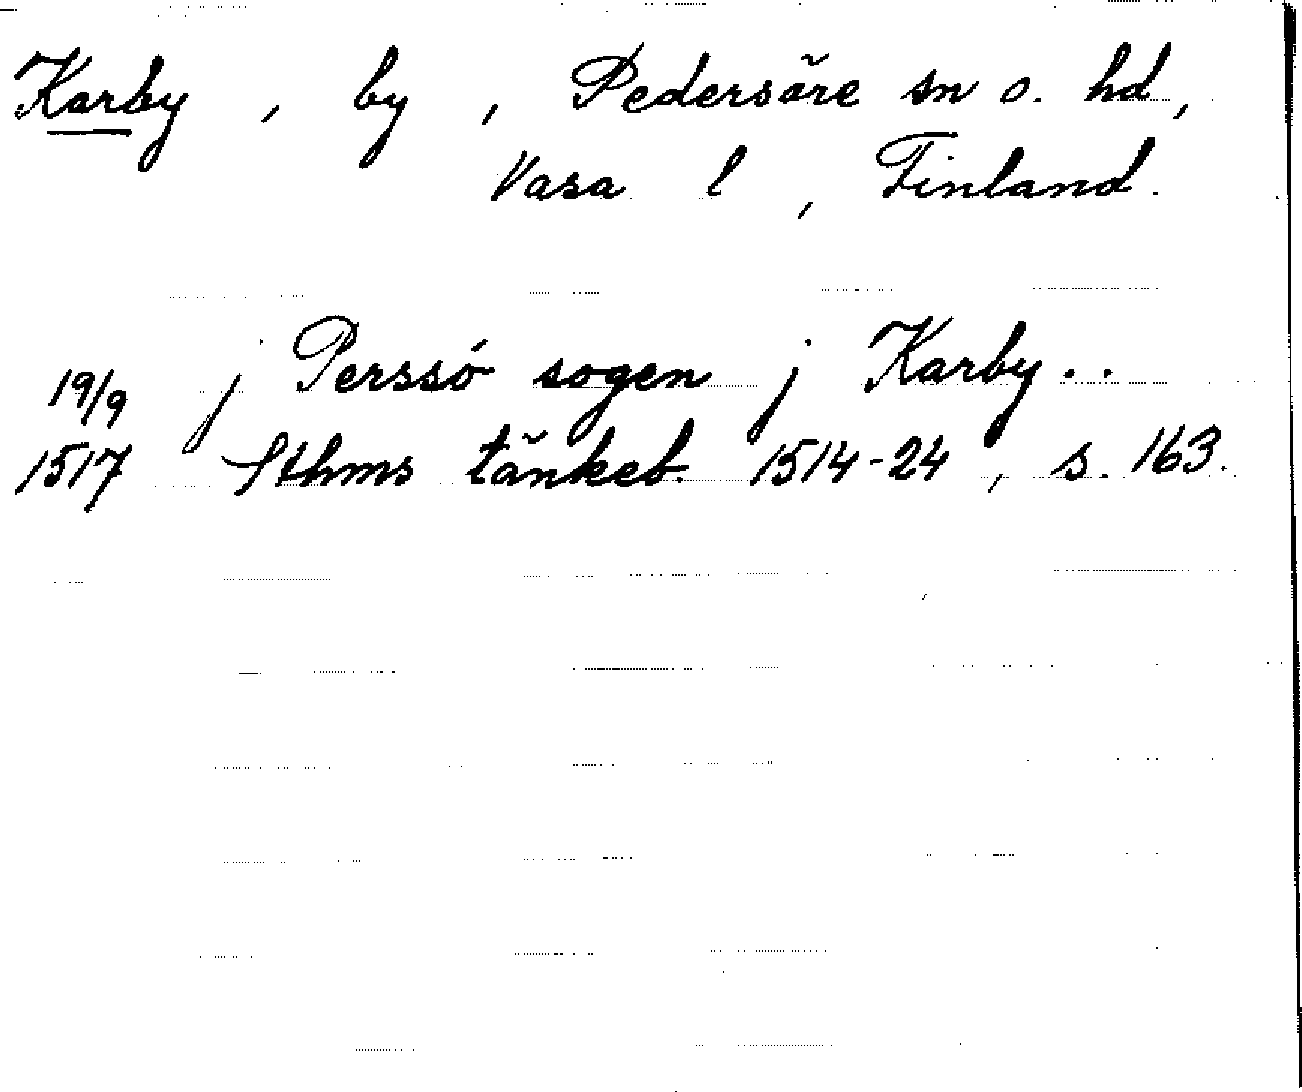 Karby, by, Pedersöre sn o. hd,
Vasa l, Finland.
19/9 j Perssö sogen j Karby..
1517 Sthms tänkeb. 1514-24, s. 163.